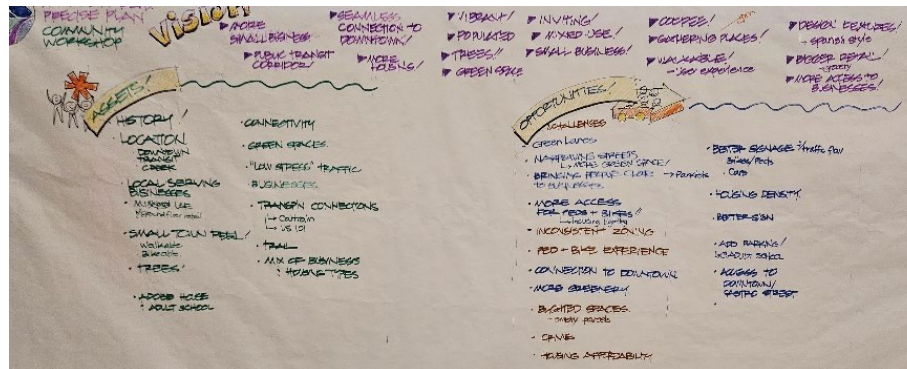 PRECISE PLAN
COMMUNITY
WORKSHOP
VISION
MORE
SMALL BUSINESS
PUBLIC TRANSIT
CORRIDOR!
SEAMLESS
CONNECTION TO
DOWNTOWN!
MORE
HOUSING!
VIBRANT!
POPULATED
TREES!!
GREEN SPACE
INVITING!
MIXED-USE!
SMALL BUSINESS!
GATHERING PLACES!
WALKABLE!
user experience
DESIGN FEATURES!
- Spanish Style
BIGGER RETAIL
MORE ACCESS TO
BUSINESSES!
ASSETS!
HISTORY!
• LOCATION
DOWNTOWN
TRANSIT
CREEK
• LOCAL SERVING
BUSINESSES
• SMALL TOWN FEEL!
Walkable
Bikeable
• TREES!
• ADOBE HOUSE
• ADULT SCHOOL
• CONNECTIVITY
• GREEN SPACES
• "LOW STRESS" TRAFFIC
BUSINESSES
• TRANSP'N CONNECTIONS
Caltrain
US 101
• TRAIL
• MIX OF BUSINESS
HOUSING TYPES
OPPORTUNITIES!
CHALLENGES
• Green Lanes
• NARROWING STREETS
MORE GREEN SPACE!
• BRINGING PEOPLE CLOSE
TO BUSINESSES
• MORE ACCESS
FOR PEDS + BIKES!!
• INCONSISTENT ZONING
• PED + BIKE EXPERIENCE
• CONNECTION TO DOWNTOWN
• MORE GREENERY
• BLIGHTED SPACES
- empty parcels
• CRIME
• HOUSING AFFORDABILITY
• BETTER SIGNAGE / traffic flow
Bikes/Peds
• Cars
• HOUSING DENSITY
BETTER SIGN
• ADD PARKING!
ADULT SCHOOL
• ACCESS TO
DOWNTOWN/
CASTRO STREET